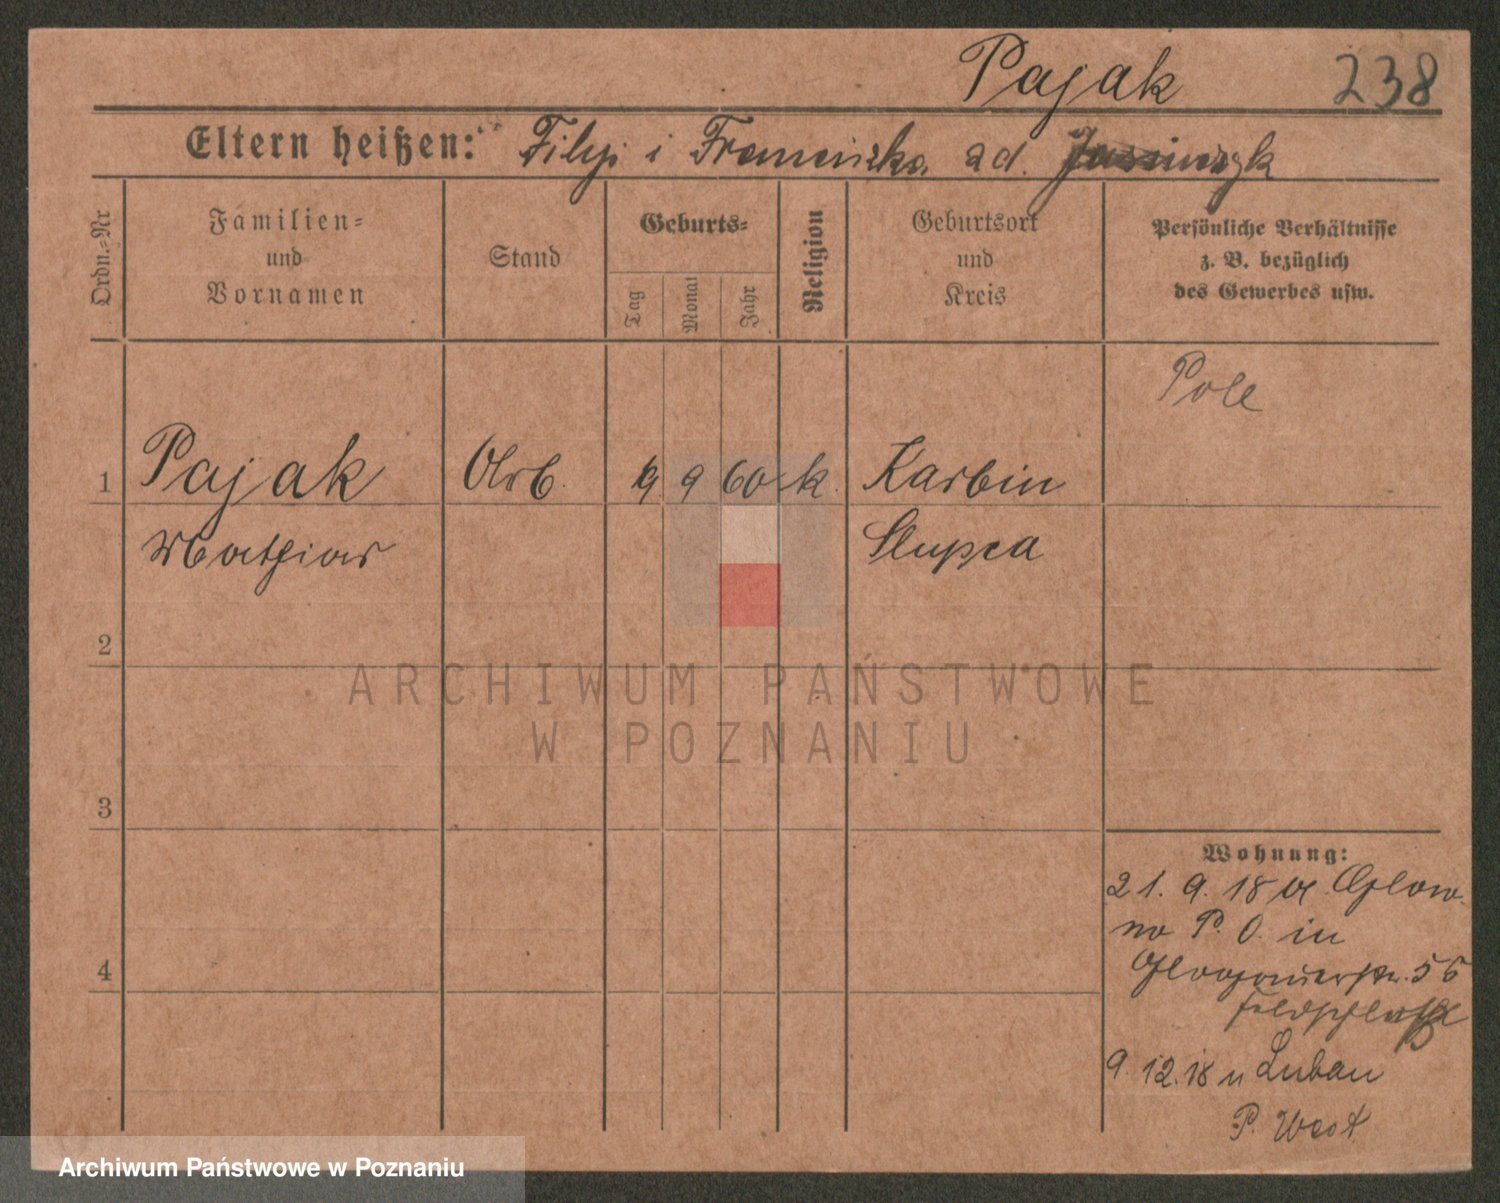 Pajak 238
Eltern heißen: Filip i Franciszka ad.
Ordn.=Nr
Familien=
und
Vornamen
Stand
Geburts=
Tag
Monat
Jahr
Religion
Geburtsort
und
Kreis
Persönliche Verhältnisse
z. B. bezüglich
des Gewerbes usw.
Pole
1 Pajak Arb. 9 9 60 k. Karbin
Mathias Slupca
2
3
4
ARCHIWUM PAŃSTWOWE
W POZNANIU
Wohnung:
21. 9. 18 a. Glow
no P. O. in
Glogauerstr. 56
Feldschloß
9. 12. 18 n Luban
P. West
Archiwum Państwowe w Poznaniu